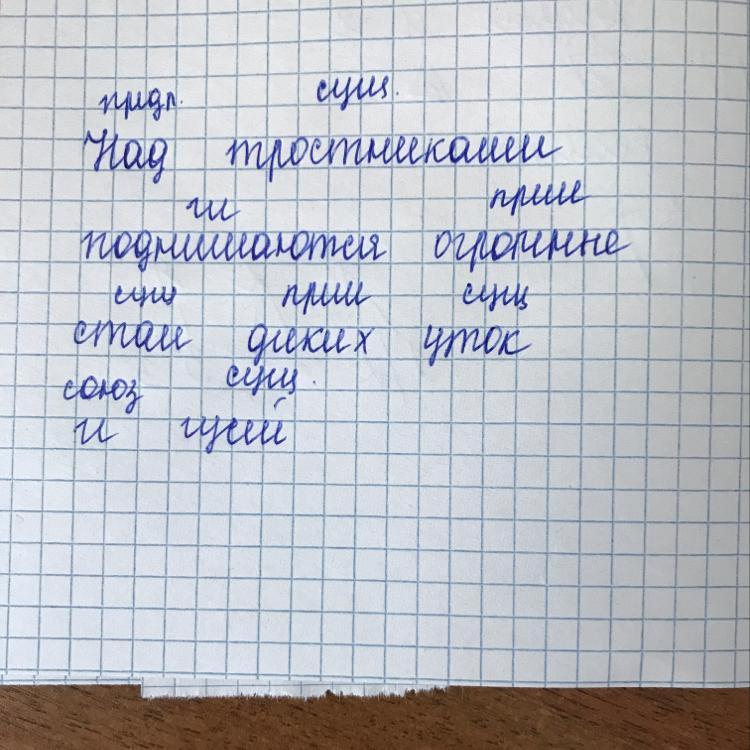 предл. сущ.
Над тростниками
гл прил
поднимаются огромные
сущ прил сущ
стаи диких уток
союз сущ.
и гусей